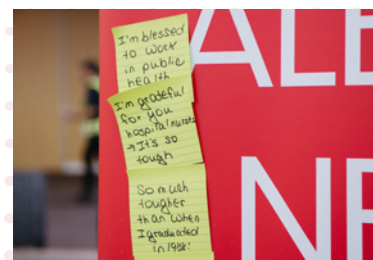 I'm blessed
to work
in public
health
I'm grateful
for you
hospital nurses
→ It's so
tough
So much
tougher
than when
I graduated
in 1988!
ALE
NE